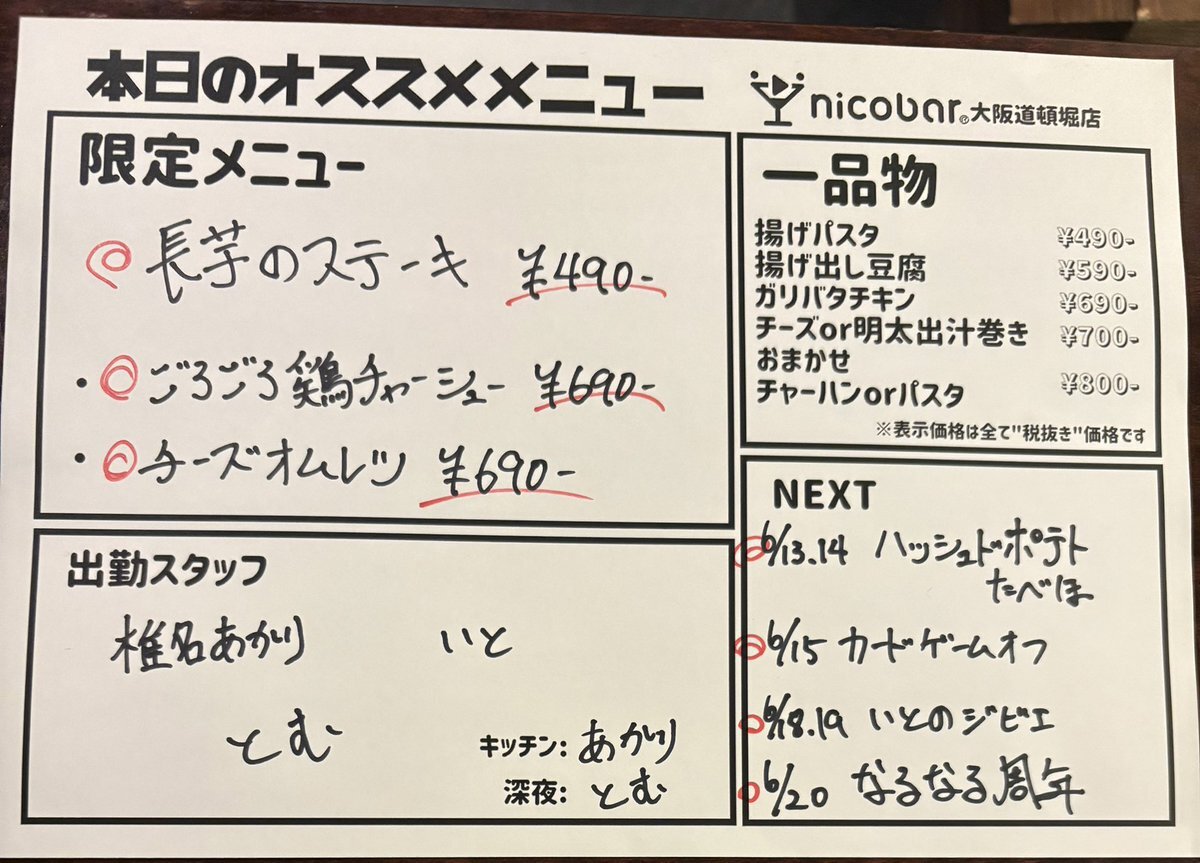 本日のオススメメニュー
nicobar® 大阪道頓堀店
限定メニュー
長芋のステーキ ¥490-
・ごろごろ鶏チャーシュー ¥690-
・チーズオムレツ ¥690-
一品物
揚げパスタ ¥490-
揚げ出し豆腐 ¥590-
ガリバタチキン ¥690-
チーズor明太出汁巻き ¥700-
おまかせ
チャーハンorパスタ ¥800-
※表示価格は全て"税抜き"価格です
出勤スタッフ
椎名あかり いと
とむ
キッチン: あかり
深夜: とむ
NEXT
6/13.14 ハッシュドポテト
たべほ
6/15 カードゲームオフ
6/18.19 いとのジビエ
6/20 なるなる周年